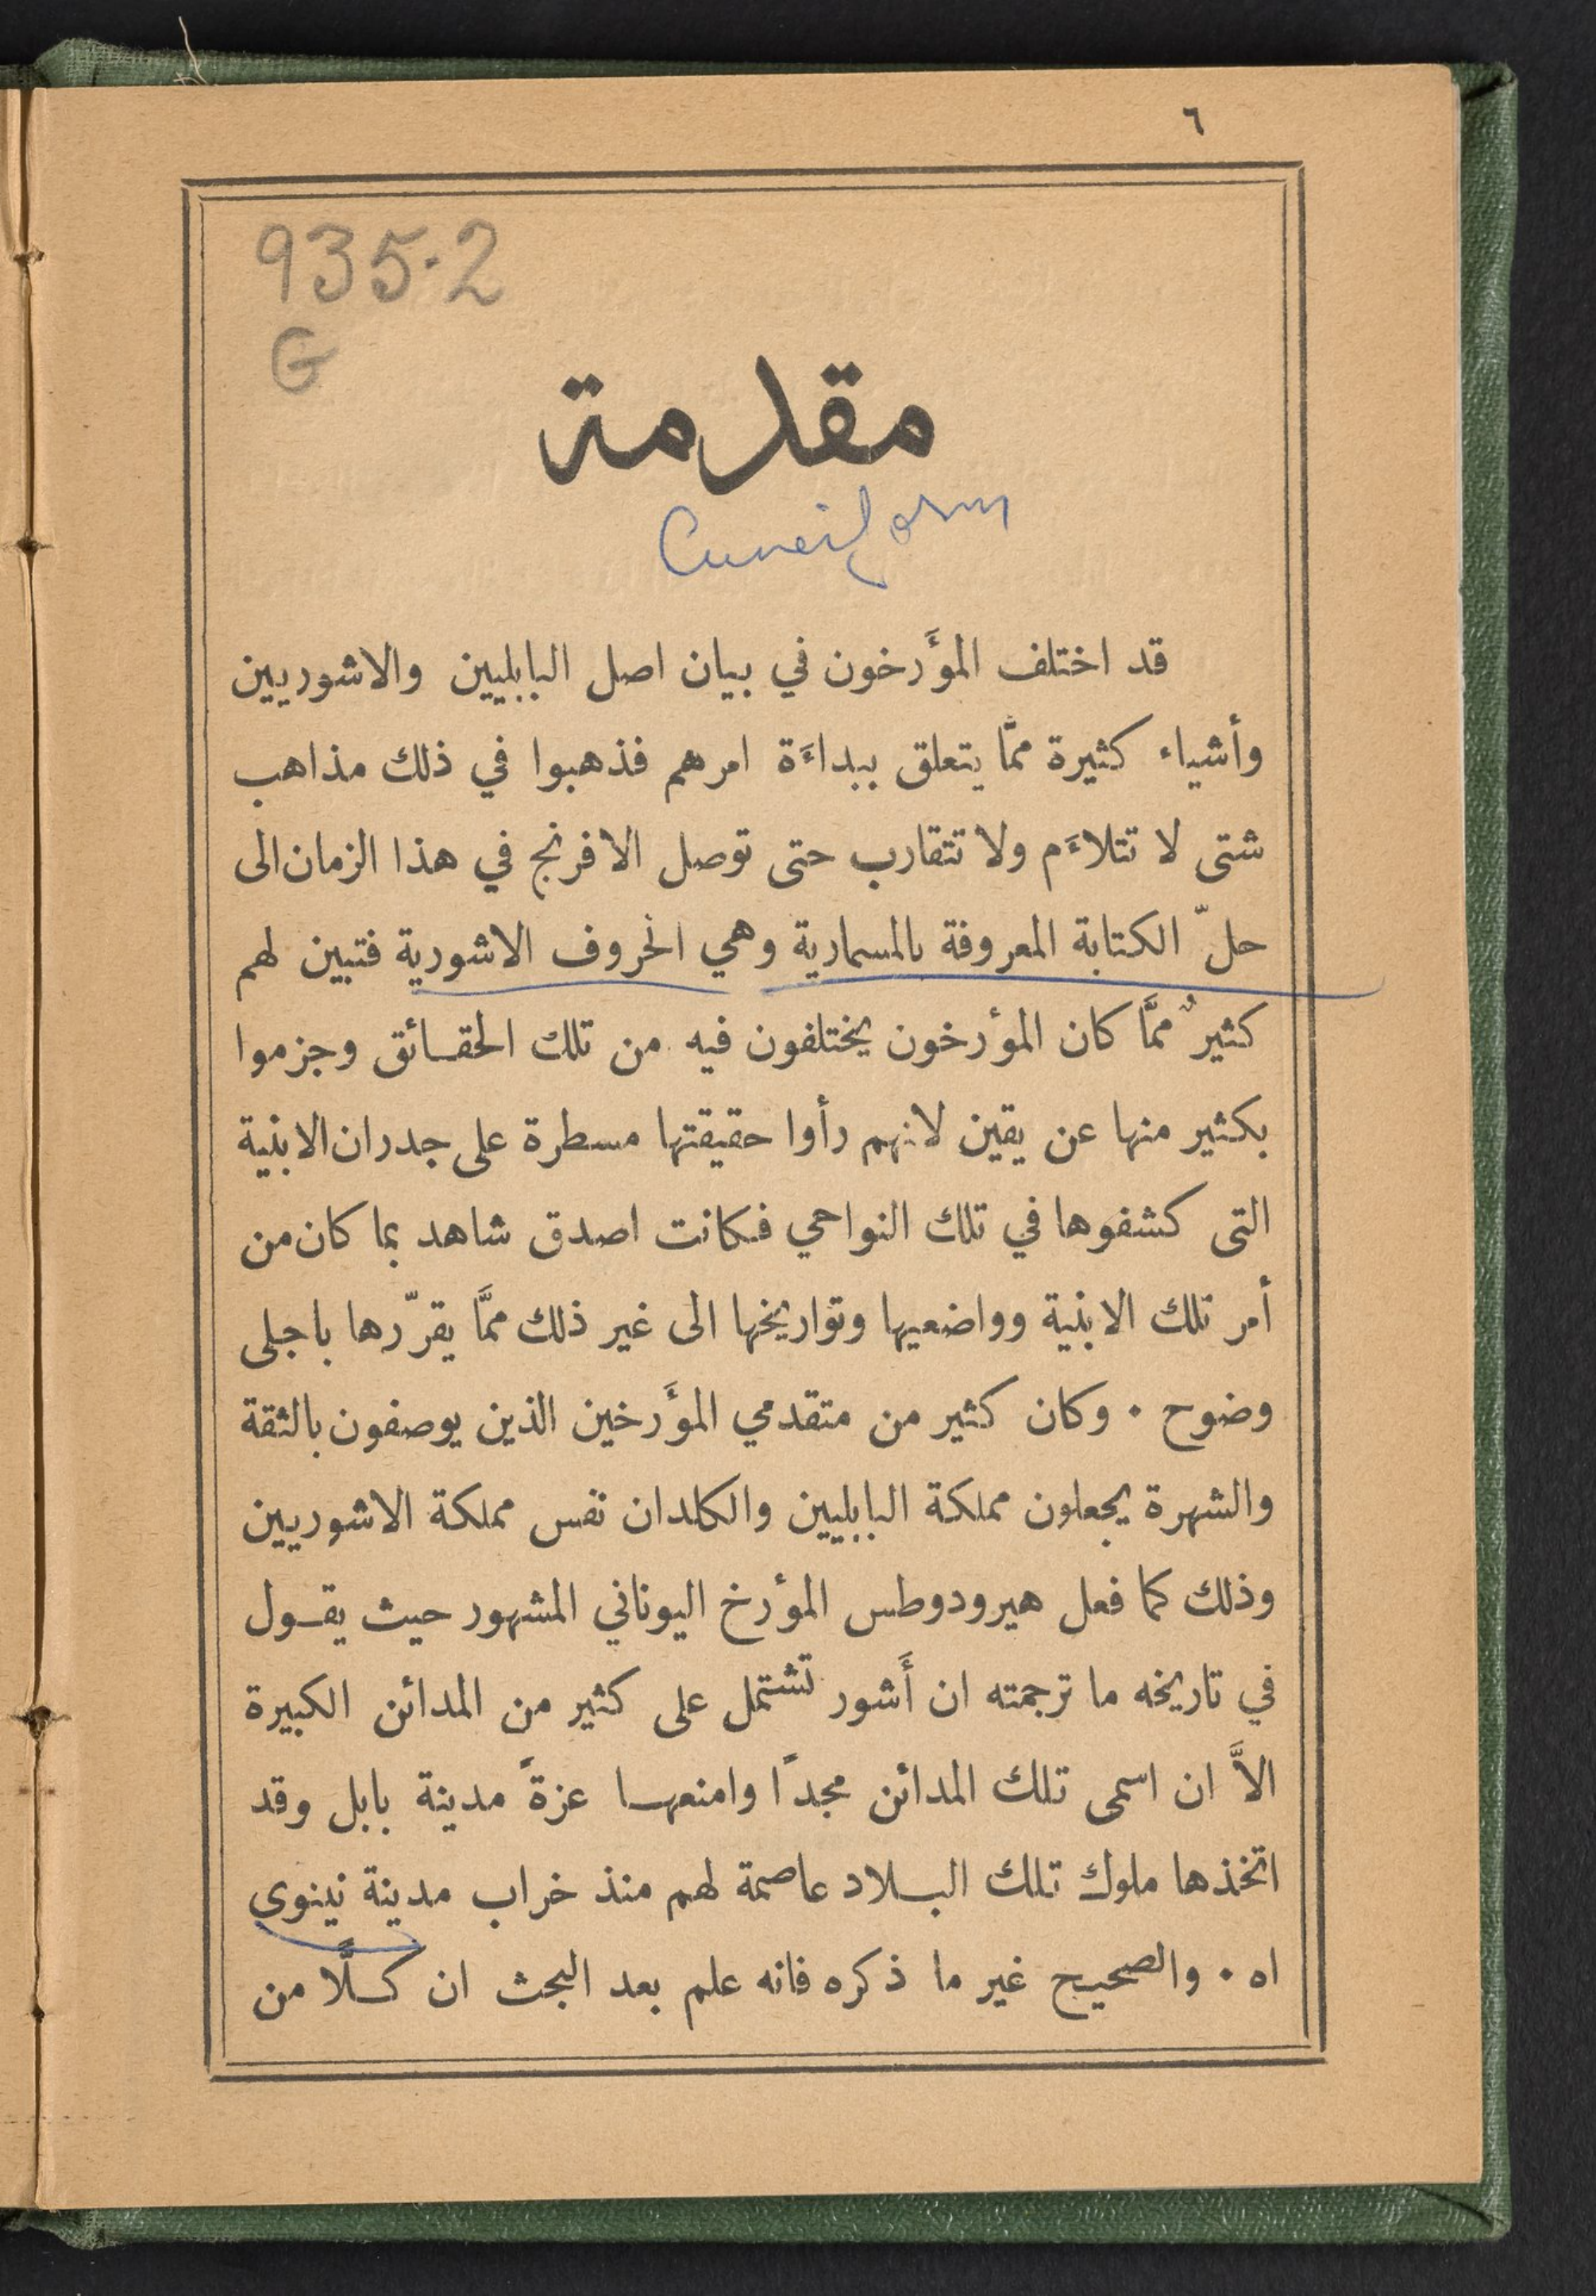 ٦
935.2
G
مقدمة
Cuneiform
قد اختلف المؤَرخون في بيان اصل البابليين والاشوريين
وأشياء كثيرة ممَّا يتعلق ببداءَة امرهم فذهبوا في ذلك مذاهب
شتى لا تتلاءَم ولا تتقارب حتى توصل الافرنج في هذا الزمان الى
حلّ الكتابة المعروفة بالمسمارية وهي الحروف الاشورية فتبين لهم
كثيرٌ ممَّا كان المؤرخون يختلفون فيه من تلك الحقـائق وجزموا
بكثير منها عن يقين لانهم رأوا حقيقتها مسطرة على جدران الابنية
التى كشفوها في تلك النواحي فكانت اصدق شاهد بما كان من
أمر تلك الابنية وواضعيها وتواريخها الى غير ذلك ممَّا يقرّرها باجلى
وضوح ٠ وكان كثير من متقدمي المؤَرخين الذين يوصفون بالثقة
والشهرة يجعلون مملكة البابليين والكلدان نفس مملكة الاشوريين
وذلك كما فعل هيرودوطس المؤرخ اليوناني المشهور حيث يقـول
في تاريخه ما ترجمته ان أَشور تشتمل على كثير من المدائن الكبيرة
الاَّ ان اسمى تلك المدائن مجدًا وامنعهـا عزةً مدينة بابل وقد
اتخذها ملوك تلك البـلاد عاصمة لهم منذ خراب مدينة نينوى
اه ٠ والصحيح غير ما ذكره فانه علم بعد البحث ان كـلًّا من